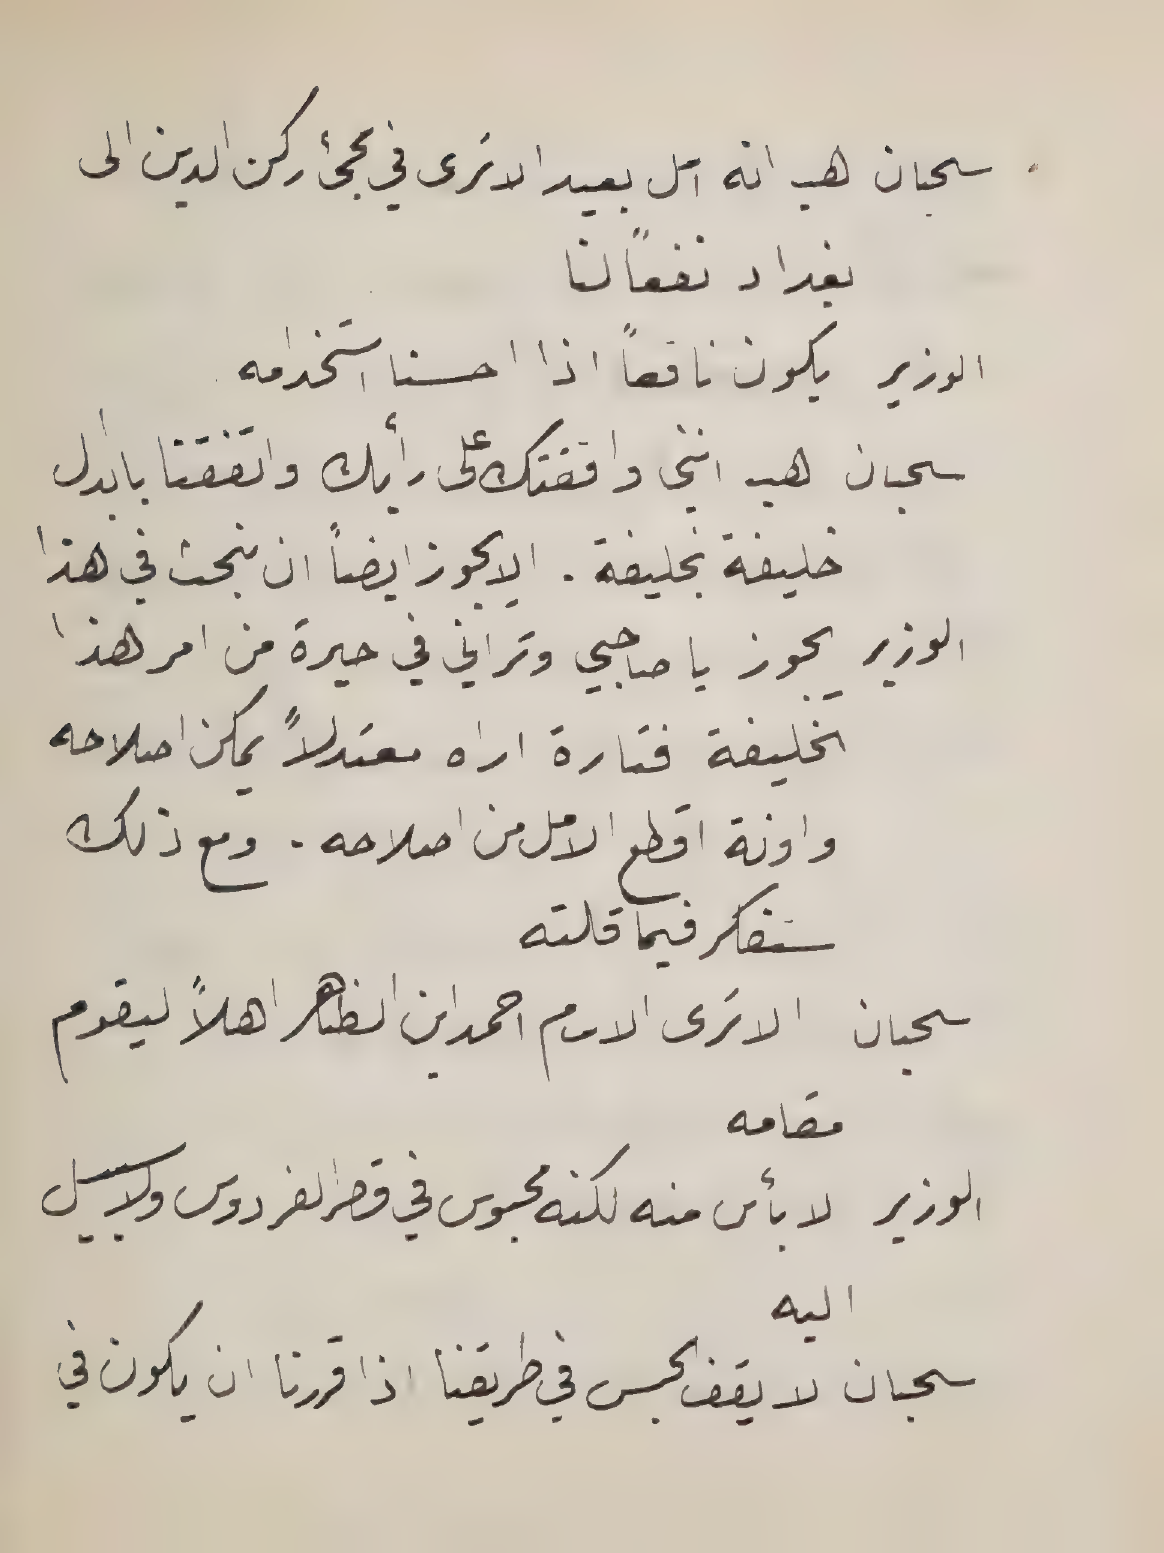 سحبان هب انه امل بعيد الا ترى في مجئ ركن الدين الى
بغداد نفعاً لنا
الوزير يكون نافعاً اذا احسنا استخدامه
سحبان هب انني وافقتك على رأيك واتفقنا بابدل
خليفة بخليفة . الا يجوز ايضاً ان نبحث في هذا
الوزير يجوز يا صاحبي وتراني في حيرة من امر هذا
الخليفة فتارة اراه معتدلاً يمكن اصلاحه
واونة اقطع الامل من اصلاحه . ومع ذلك
سنفكر فيما قلته
سحبان الا ترى الامام احمد ابن الظاهر اهلاً ليقوم
مقامه
الوزير لا بأس منه لكنه محبوس في قصر الفردوس ولا سبيل
اليه
سحبان لا يقف الحبس في طريقنا اذا قررنا ان يكون في